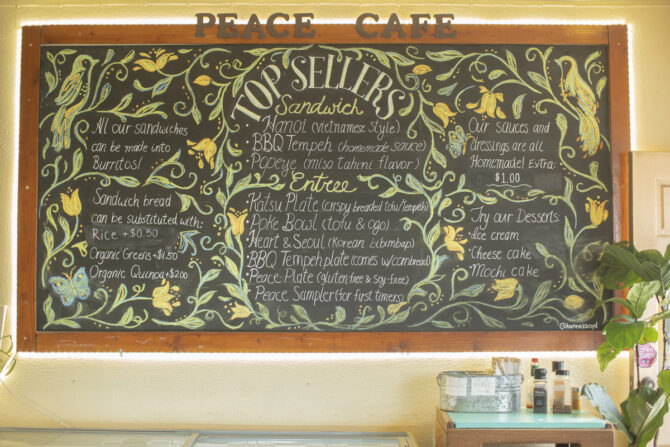 PEACE CAFE
TOP SELLERS
All our sandwiches
can be made into
Burritos!
Sandwich bread
can be substituted with:
Rice +$0.50
Organic Greens +$1.50
Organic Quinoa +$2.00
Sandwich
Hanoi (Vietnamese Style)
BBQ Tempeh (homemade sauce)
Popeye (miso tahini flavor)
Entree
Katsu Plate (crispy breaded tofu/tempeh)
Poke Bowl (tofu & ogo)
Heart & Seoul (Korean bibimbap)
BBQ Tempeh plate (comes w/cornbread)
Peace Plate (gluten free & soy-free)
Peace Sampler (for first timers)
Our sauces and
dressings are all
Homemade! Extra:
$1.00
Try our Desserts:
Ice cream
Cheese cake
Mochi cake